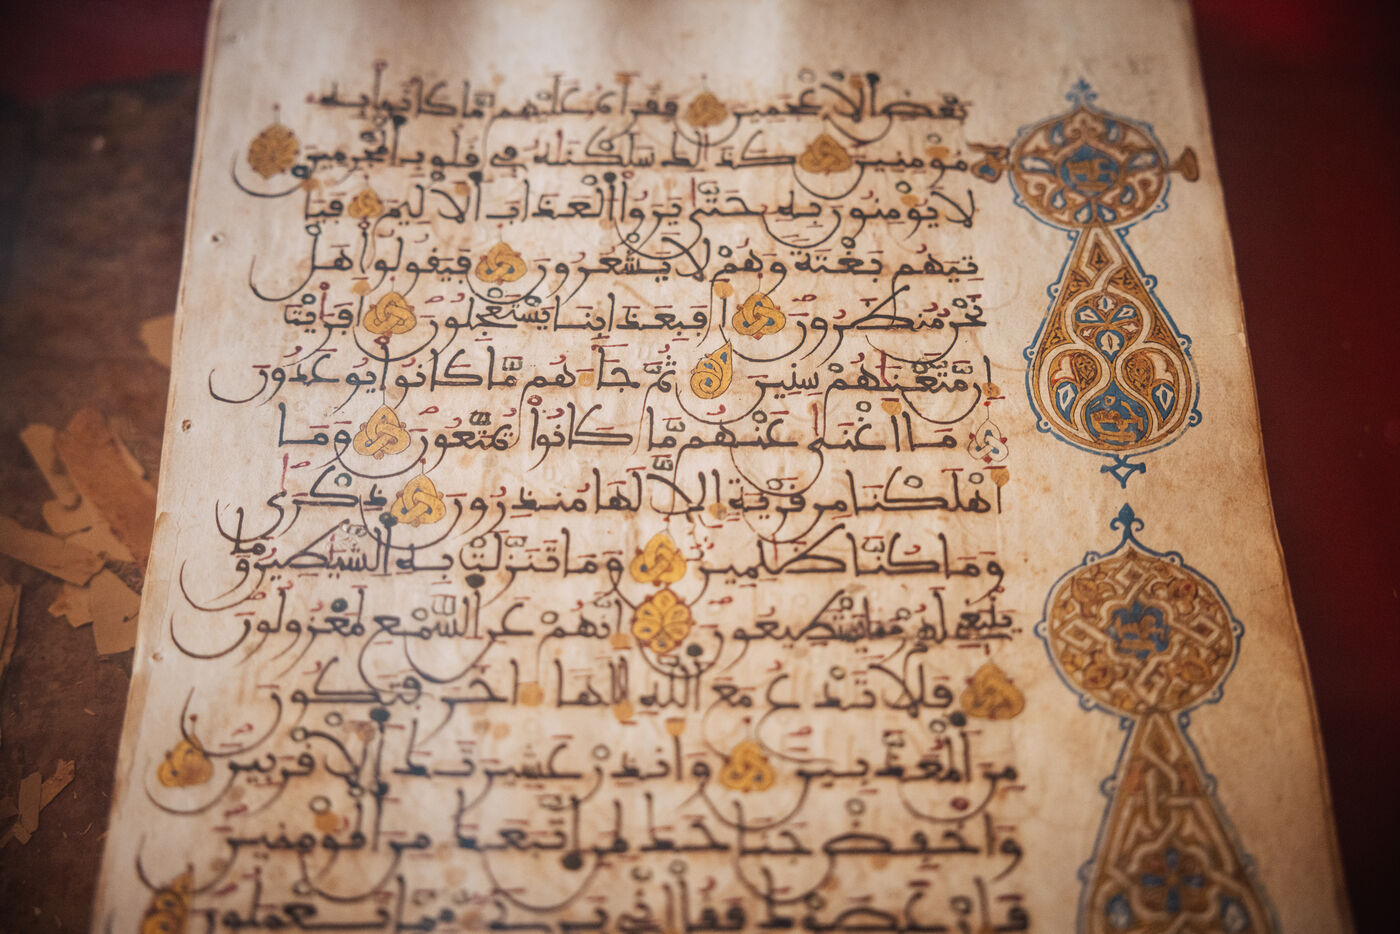 بَعْضِ الاَعْجَمِينَ فَقَرَأَهُ عَلَيْهِم مَّا كَانُوا بِهِ
مُومِنِينَ كَذَلِكَ سَلَكْنَهُ فِي قُلُوبِ الْمُجْرِمِينَ
لَا يُومِنُونَ بِهِ حَتَّى يَرَوُا الْعَذَابَ الاَلِيمَ فَيَا
تِيَهُم بَغْتَةً وَهُمْ لَا يَشْعُرُونَ فَيَقُولُوا هَلْ
نَحْنُ مُنظَرُونَ أَفَبِعَذَابِنَا يَسْتَعْجِلُونَ أَفَرَيْتَ
إِن مَّتَّعْنَهُمْ سِنِينَ ثُمَّ جَاءَهُم مَّا كَانُوا يُوعَدُونَ
مَا أَغْنَى عَنْهُم مَّا كَانُوا يُمَتَّعُونَ وَمَا
أَهْلَكْنَا مِن قَرْيَةٍ إِلَّا لَهَا مُنذِرُونَ ذِكْرَى
وَمَا كُنَّا ظَلِمِينَ وَمَا تَنَزَّلَتْ بِهِ الشَّيَطِينُ وَمَا
يَنبَغِي لَهُمْ وَمَا يَسْتَطِيعُونَ إِنَّهُمْ عَنِ السَّمْعِ لَمَعْزُولُونَ
فَلَا تَدْعُ مَعَ اللَّهِ إِلَهًا اخَرَ فَتَكُونَ
مِنَ الْمُعَذَّبِينَ وَأَنذِرْ عَشِيرَتَكَ الاَقْرَبِينَ
وَاخْفِضْ جَنَاحَكَ لِمَنِ اتَّبَعَكَ مِنَ الْمُومِنِينَ
فَإِنْ عَصَوْكَ فَقُلْ إِنِّي بَرِيءٌ مِّمَّا تَعْمَلُونَ